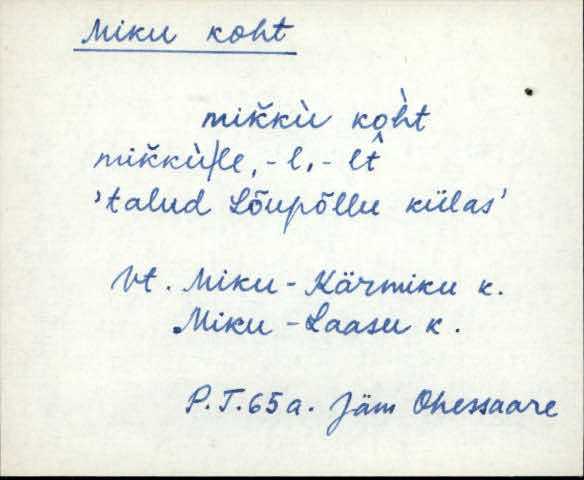 Miku koht
mik̆kù kòht
mik̆kù/le, -l, -lt̂
'talud Lõupõllu külas'
Vt. Miku-Kärmiku k.
Miku-Laasu k.
P.T.65a. Jäm Ohessaare